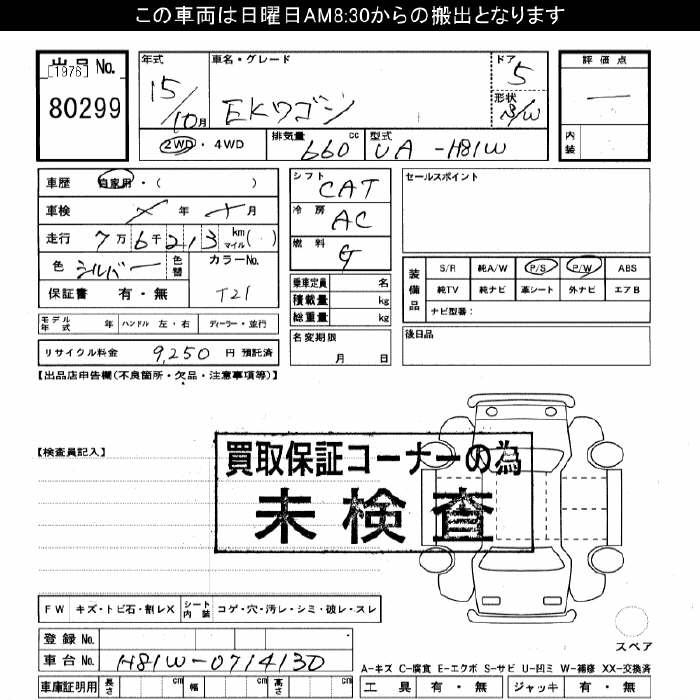 この車両は日曜日AM8:30からの搬出となります
出品 No.
[1976]
80299
年式
15/10月
車名・グレード
EKワゴン
ドア
5
形状
S/W
評価点
—
内装
2WD・4WD
排気量 660 cc
型式 UA-H81W
車歴 自家用・( )
車検 年 月
走行 7万6千213 km マイル( )
色 シルバー 色替
カラーNo. T21
保証書 有・無
シフト CAT
冷房 AC
燃料 G
乗車定員 名
積載量 kg
総重量 kg
名変期限 月 日
セールスポイント
装備品
S/R 純A/W P/S P/W ABS
純TV 純ナビ 革シート 外ナビ エアB
ナビ型番:
後日品
モデル年式 年 ハンドル 左・右 ディーラー・並行
リサイクル料金 9,250 円 預託済
【出品店申告欄(不良箇所・欠品・注意事項等)】
【検査員記入】
買取保証コーナーの為
未検査
FW キズ・トビ石・割レX シート内装 コゲ・穴・汚レ・シミ・破レ・スレ
スペア
登録 No.
車台 No. H81W-0714130
A-キズ C-腐食 E-エクボ S-サビ U-凹ミ W-補修 XX-交換済
車庫証明用 長さ cm 幅 cm 高さ cm
工具 有・無 ジャッキ 有・無